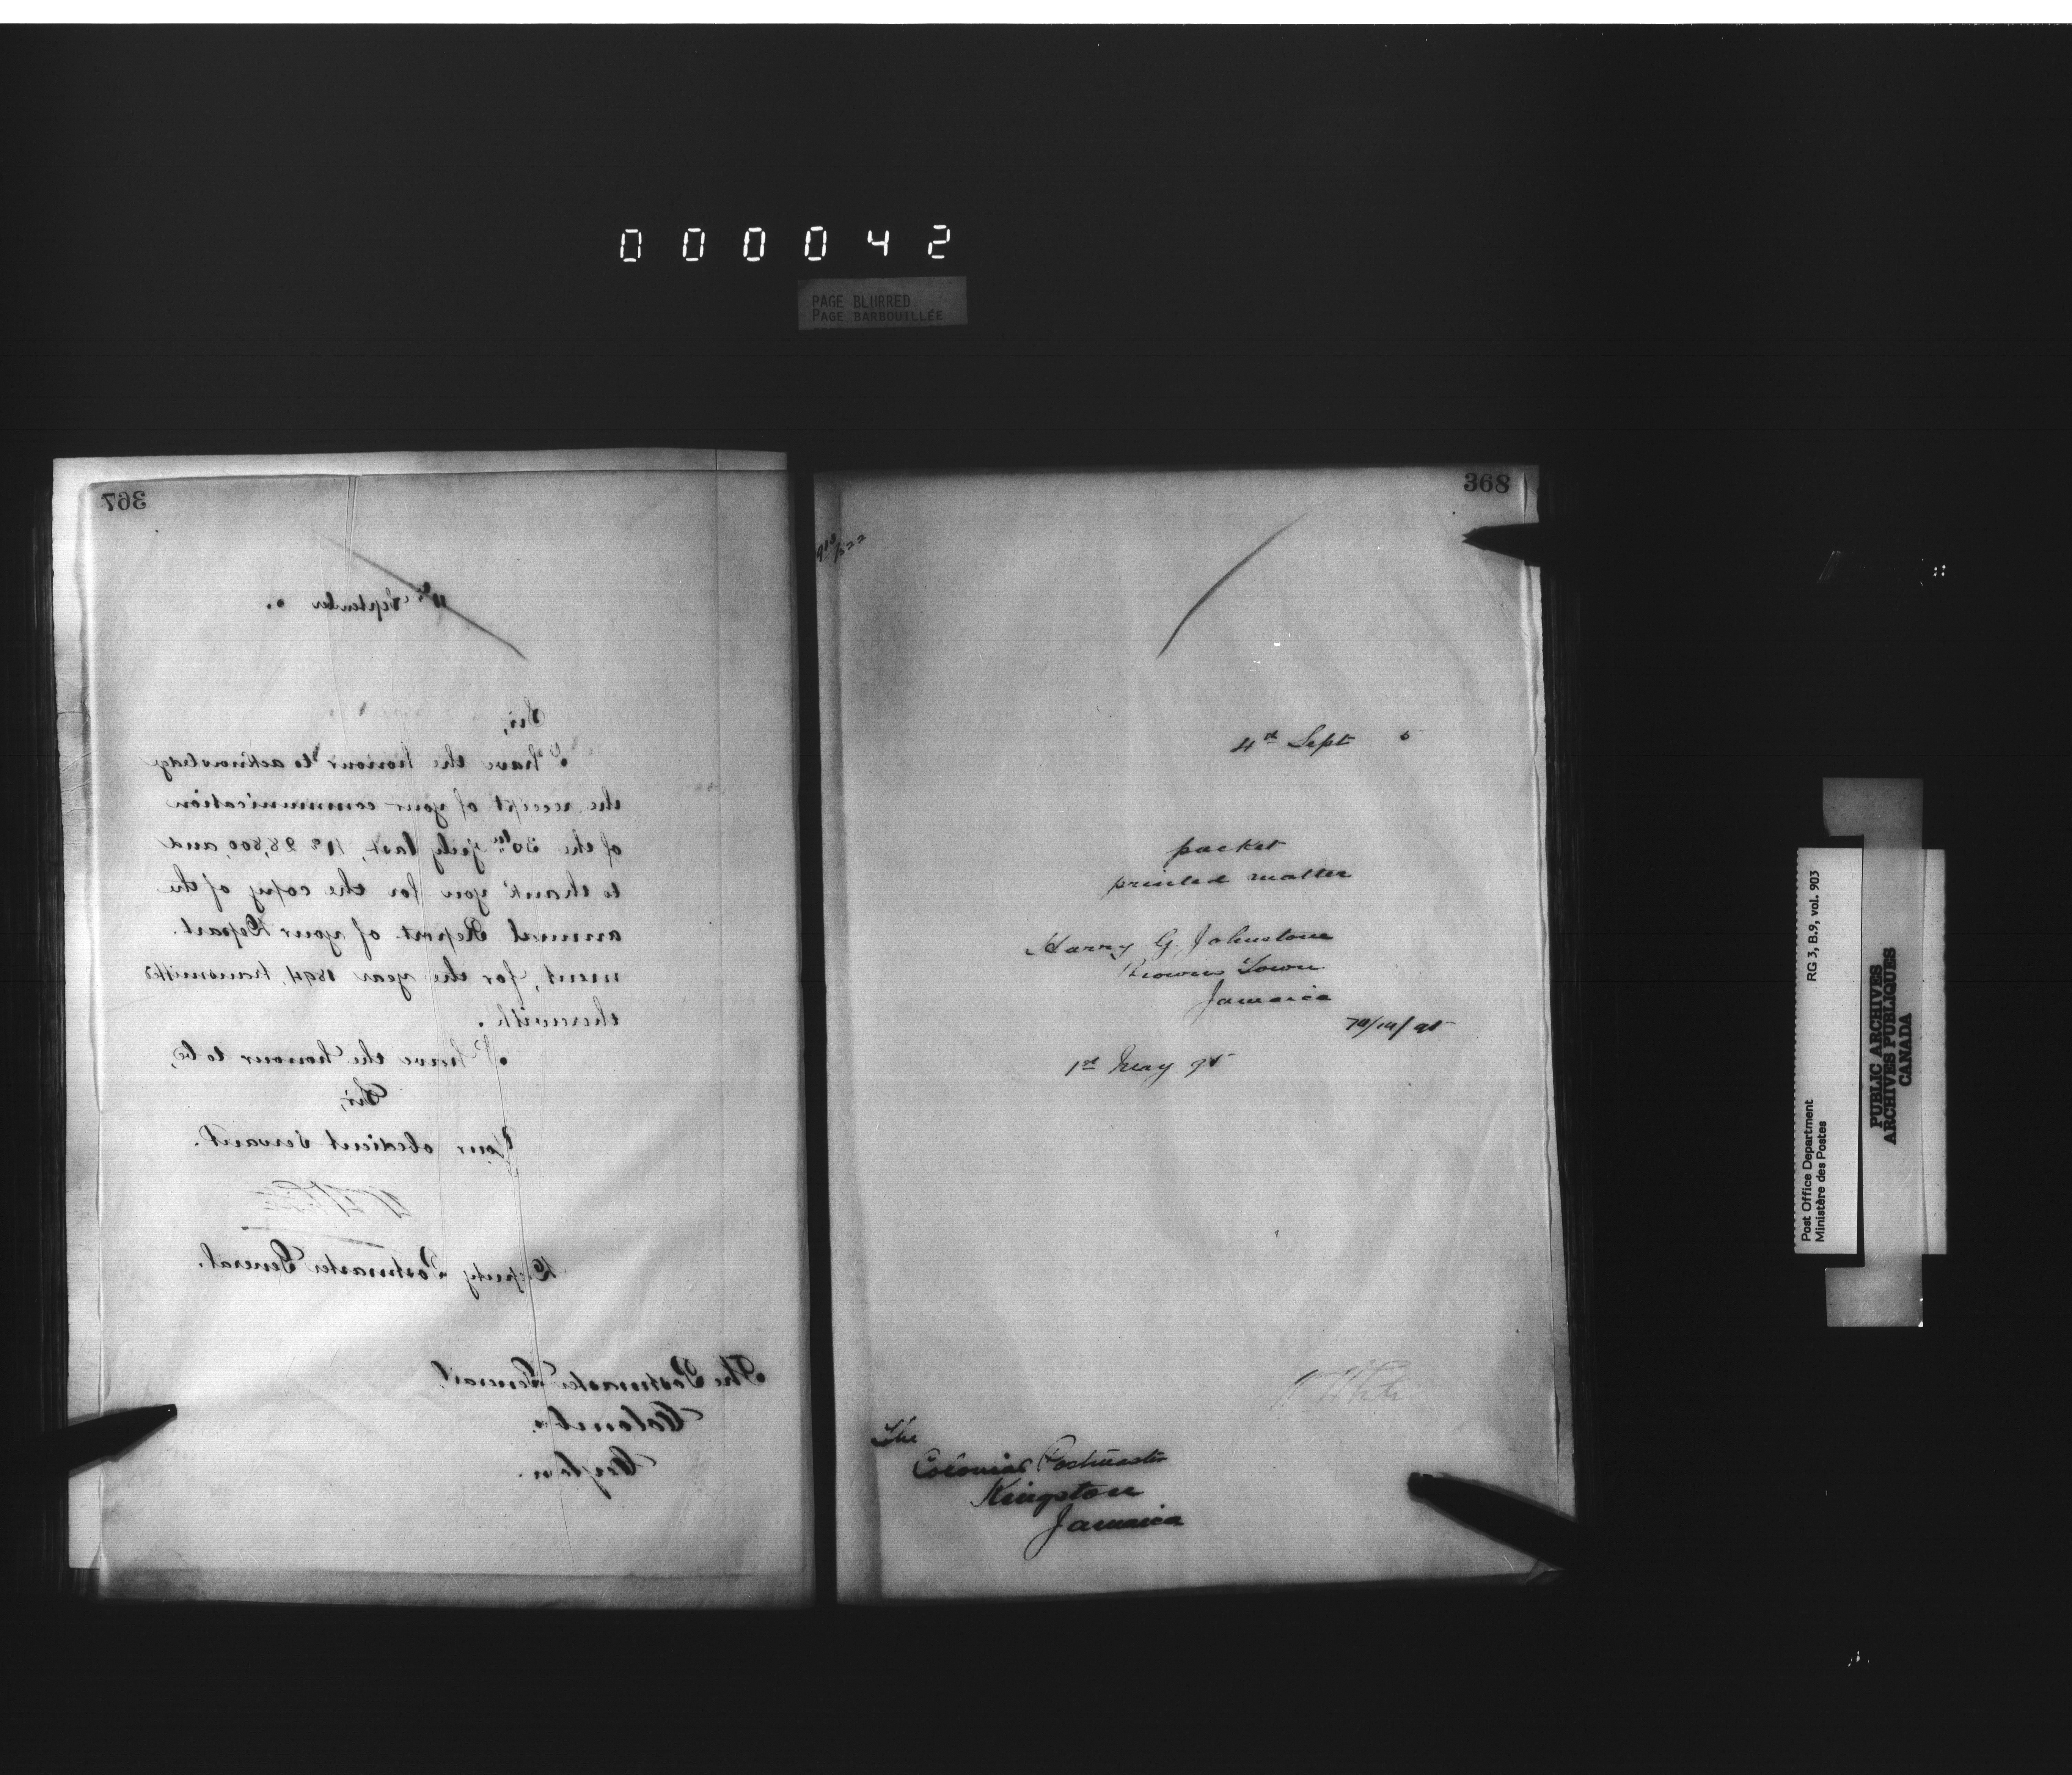 000042
PAGE BLURRED
PAGE BARBOUILLÉE
367
September 5.
Sir,
I have the honour to acknowledge
the receipt of your communication
of the 30th July last, No 28,800, and
to thank you for the copy of the
annual Report of your Depart-
ment, for the year 1894, transmitted
therewith.
I have the honour to be,
Sir,
Your obedient Servant.
W White
Deputy Postmaster General.
The Postmaster General,
Colombo.
Ceylon.
368
4th Sept 5
packet
printed matter
Harry G. Johnstone
Browns Town
Jamaica
1st May 95
W White
The
Colonial Postmaster
Kingston
Jamaica
Post Office Department
Ministère des Postes
RG 3, B.9, vol. 903
PUBLIC ARCHIVES
ARCHIVES PUBLIQUES
CANADA